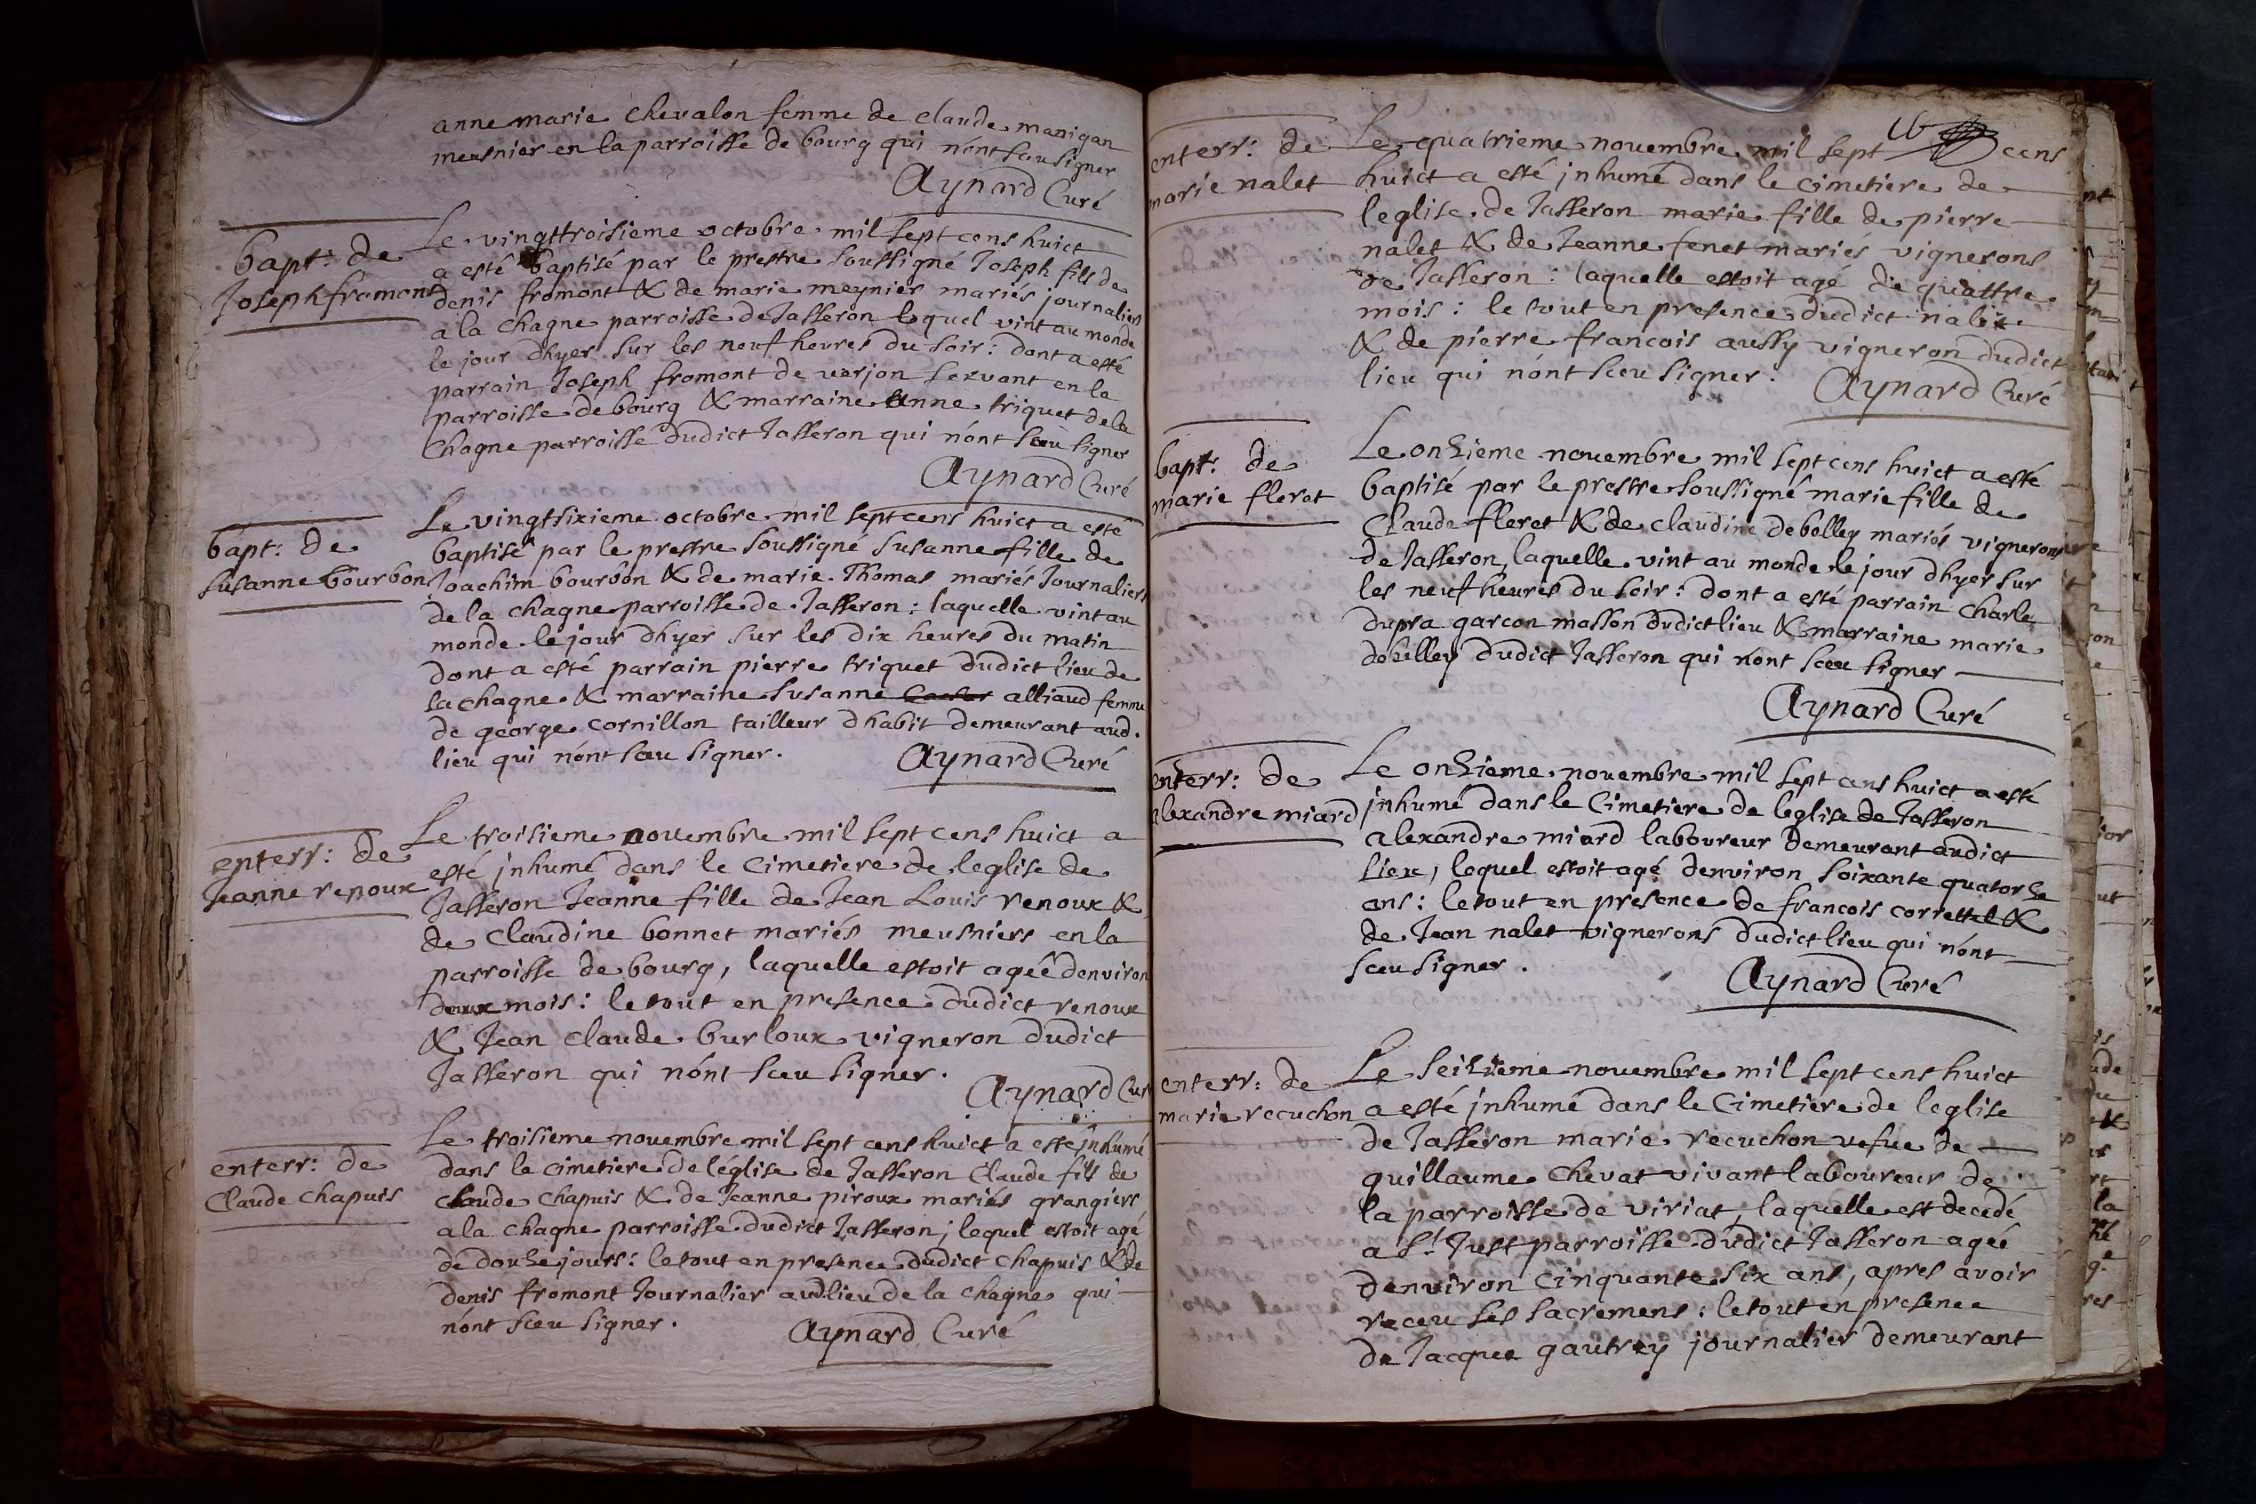 anne marie chevalon femme de claude manigan
meusnier en la parroisse de bourg qui nónt sceu signer
Aynard Curé
bapt: de
Joseph fromont
Le vingttroisieme octobre mil sept cens huict
a esté baptisé par le prestre soussigné Joseph fils de
denis fromont & de marie meynier mariés journaliers
a la chagne parroisse de Jasseron lequel vint au monde
le jour dhyer sur les neuf heures du soir: dont a esté
parrain Joseph fromont de varjon servant en la
parroisse de bourg & marraine anne triquet de la
chagne parroisse dudict Jasseron qui nónt sceu signer
Aynard Curé
bapt: de
susanne bourbon
Le vingtsixieme octobre mil sept cens huict a esté
baptisé par le prestre soussigné susanne fille de
Joachim bourbon & de marie Thomas mariés Journaliers
de la chagne parroisse de Jasseron: laquelle vint au
monde le jour dhyer sur les dix heures du matin
dont a esté parrain pierre triquet dudict lieu de
la chagne & marraine susanne alliaud femme
de george cornillon tailleur dhabit demeurant aud.
lieu qui nónt sceu signer.
Aynard Curé
enterr: de
Jeanne renoux
Le troisieme novembre mil sept cens huict a
esté jnhumé dans le cimetiere de leglise de
Jasseron Jeanne fille de Jean Louis renoux &
de claudine bonnet mariés meusniers en la
parroisse de bourg, laquelle estoit agéé denviron
deux mois: le tout en presence dudict renoux
& Jean claude burloux vigneron dudict
Jasseron qui nónt sceu signer.
Aynard Curé
enterr: de
Claude chapuis
Le troisieme novembre mil sept cens huict a esté jnhumé
dans le cimetiere de léglise de Jasseron Claude fils de
claude chapuis & de Jeanne piroux mariés grangiers
a la chagne parroisse dudict Jasseron; lequel estoit agé
de douze jours: le tout en presence dudict chapuis & de
denis fromont Journalier aud. lieu de la chagne qui
nónt sceu signer.
Aynard Curé
enterr: de
marie nalet
Le quatrieme novembre mil sept cens
huict a esté jnhumé dans le cimetiere de
leglise de Jasseron marie fille de pierre
nalet & de Jeanne fenet mariés vignerons
de Jasseron: laquelle estoit agé de quattre
mois: le tout en presence dudict nalet
& de pierre francois aussy vigneron dudict
lieu qui nónt sceu signer.
Aynard Curé
bapt: de
marie fleret
Le onzieme novembre mil sept cens huict a esté
baptisé par le prestre soussigné marie fille de
Claude fleret & de claudine debelley mariés vignerons
de Jasseron, laquelle vint au monde le jour dhyer sur
les neuf heures du soir: dont a esté parrain charle
dupra garcon masson dudict lieu & marraine marie
debelley dudict Jasseron qui nónt sceu signer
Aynard Curé
enterr: de
alexandre miard
Le onzieme novembre mil sept cens huict a esté
jnhumé dans le Cimetiere de leglise de Jasseron
alexandre miard laboureur demeurant audict
lieu, lequel estoit agé denviron soixante quatorze
ans: le tout en presence de francois correttel &
de Jean nalet vignerons dudict lieu qui nónt
sceu signer.
Aynard Curé
enterr: de
marie recuchon
Le seizieme novembre mil sept cens huict
a esté jnhumé dans le Cimetiere de leglise
de Jasseron marie recuchon vefue de
guillaume chevat vivant laboureur de
la parroisse de viriat, laquelle est decedé
a St Just parroisse dudict Jasseron agéé
denviron cinquante six ans, apres avoir
receu ses sacremens: le tout en presence
de Jacque gautrey journalier demeurant